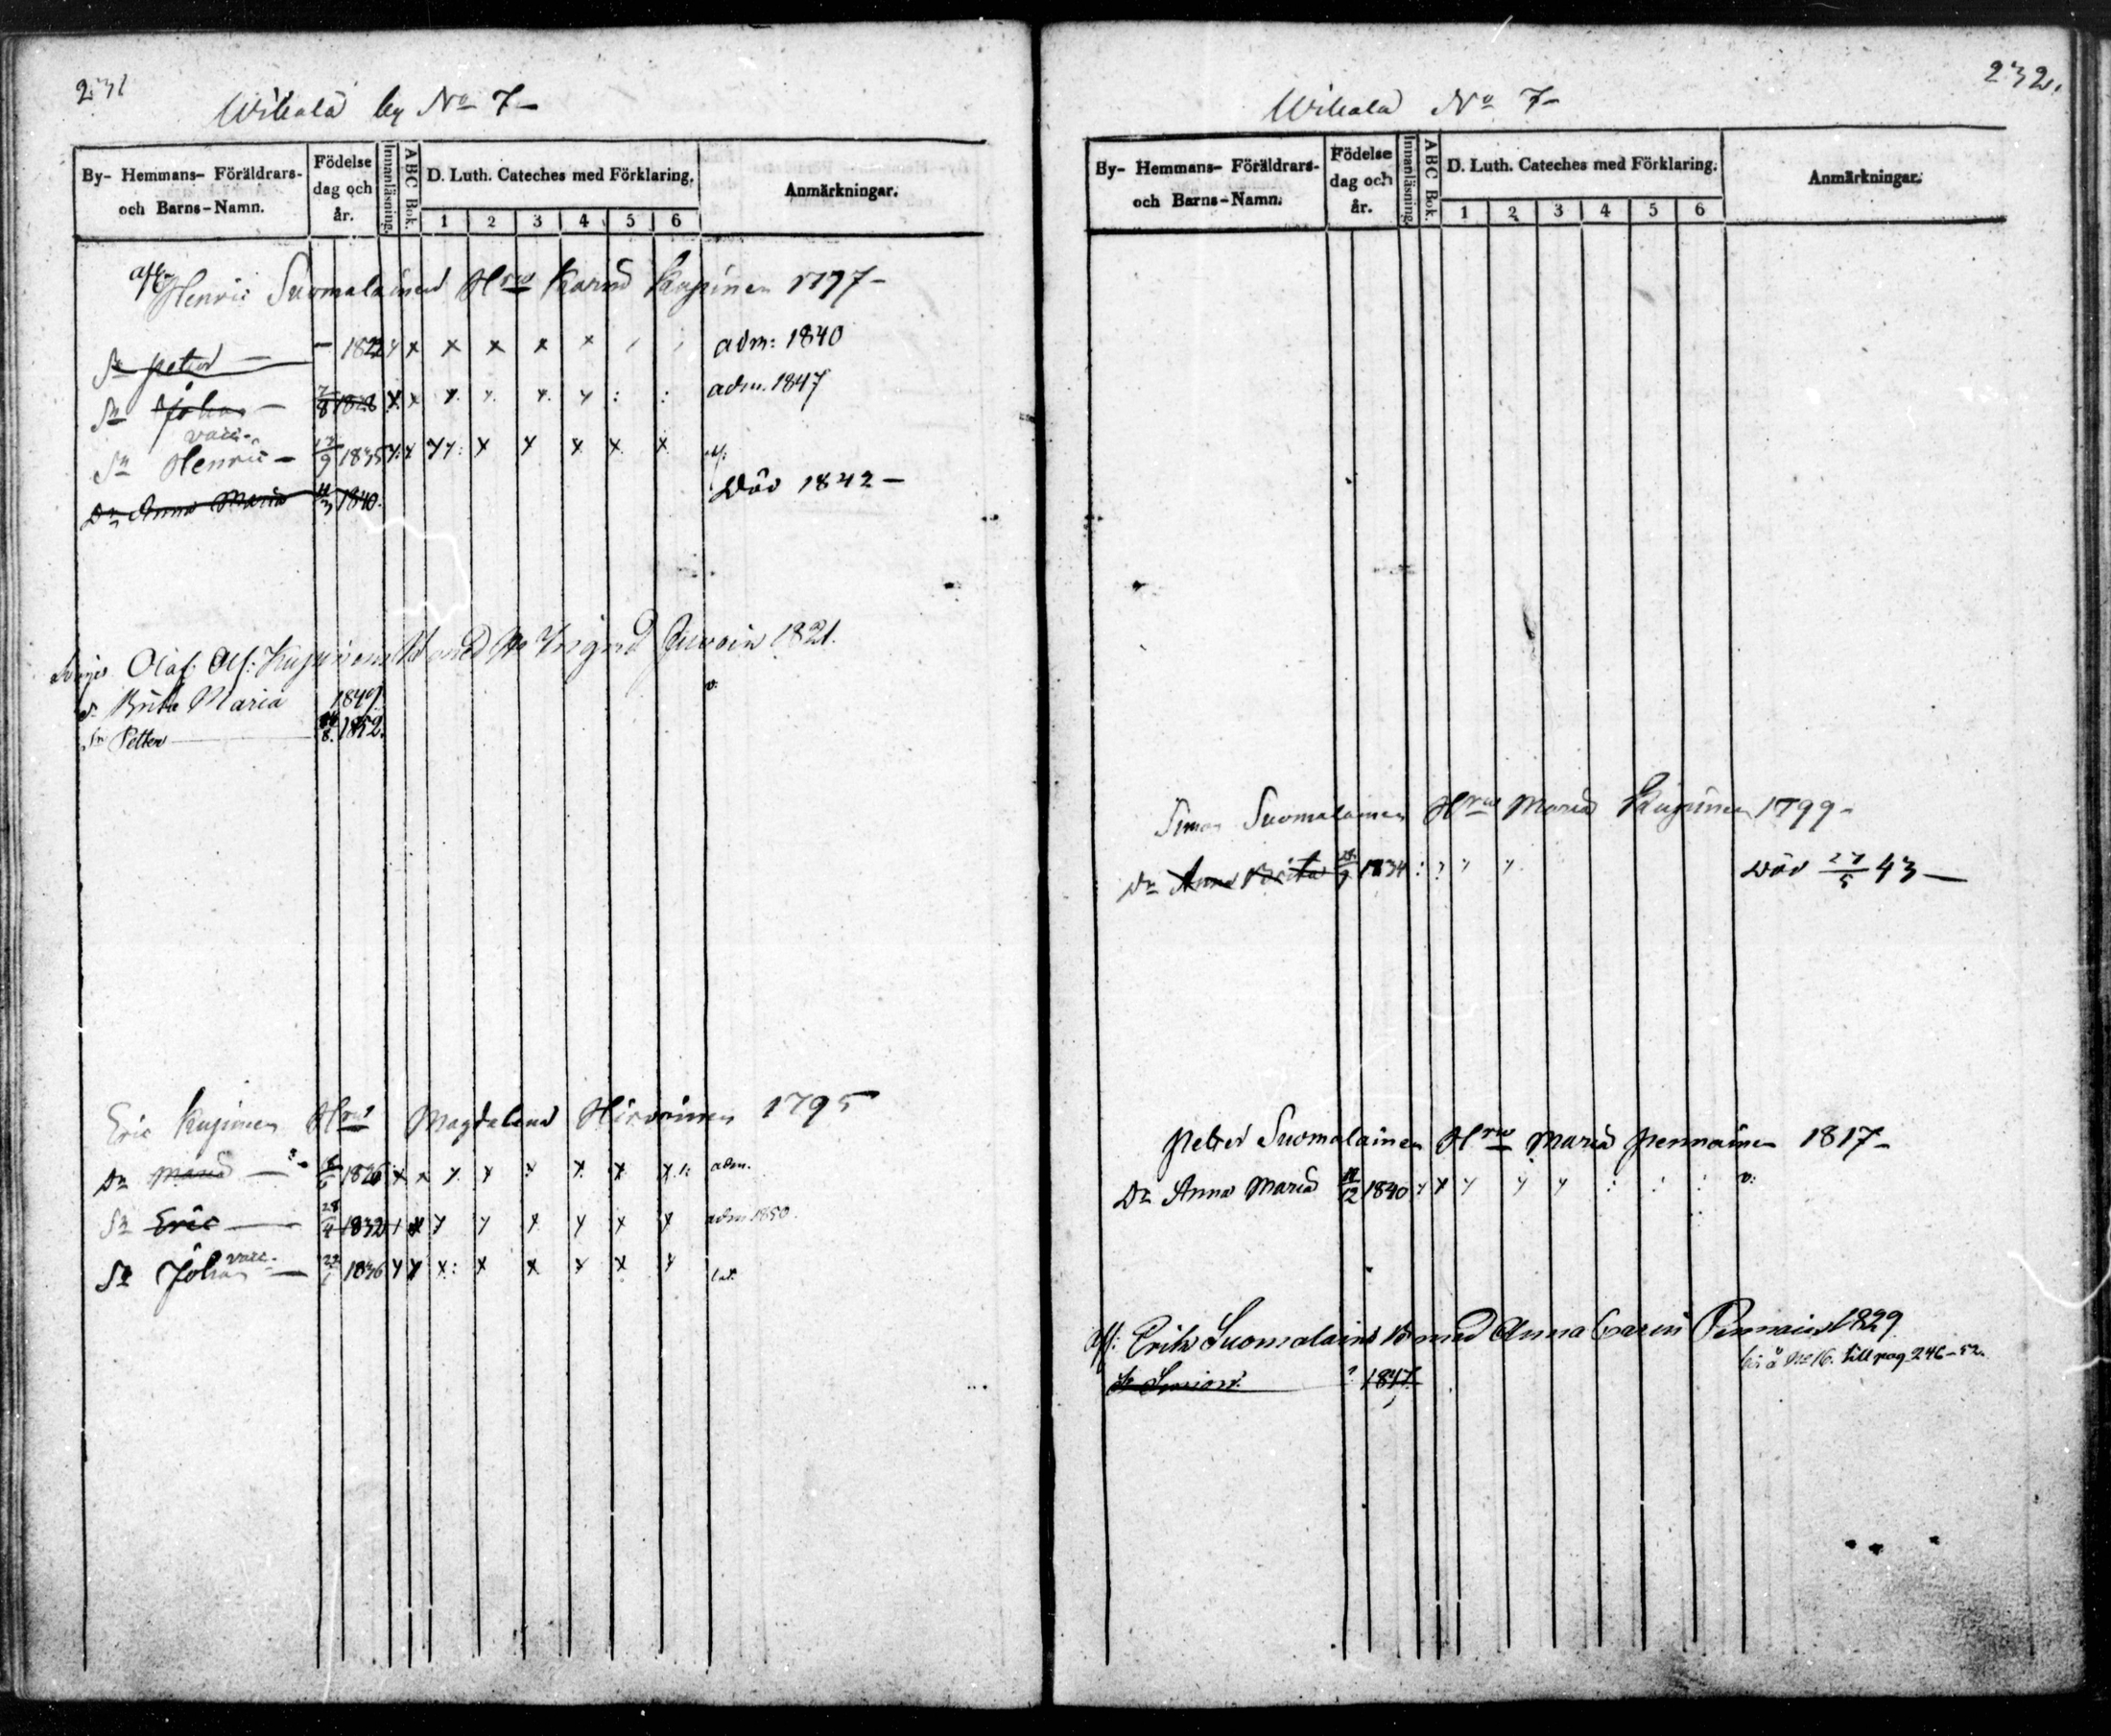 231
Wihala by No 7-
By- Hemmans- Föräldrars- och Barns-Namn.
Födelse dag och år.
Innanläsning.
ABC Bok.
D. Luth. Cateches med Förklaring.
1 2 3 4 5 6
Anmärkningar.
afl. Henric Suomalainen Hru Karin Kupinen 1797-
Sn Petter — 1822 adm: 1840
Sn Johan 7/8 1828 adm. 1847
vacc.
Sn Henric - 12/9 1835
Dr Anna Maria 11/3 1840. Död 1842 -
Olof Olf: Kupinens B med Ingrid 1821.
dr Brita Maria 1849 v.
Sn Petter 8. 1852.
Eric Kupinen Hru Magdalena Hirvoinen 1795
Dr Maria 1826 adm.
Sn Eric 28/4 1832 adm 1850.
Sn Johan vacc. 22/1 1836
232.
Wihala No 7-
By- Hemmans- Föräldrars- och Barns-Namn.
Födelse dag och år.
Innanläsning.
ABC Bok.
D. Luth. Cateches med Förklaring.
1 2 3 4 5 6
Anmärkningar.
Simon Suomalainen Hru Maria Kupinen 1799-
Dr Anna Brita 1834 Död 27/5 43 -
Petter Suomalainen Hru Maria Pennainen 1817-
Dr Anna Maria 12/2 1840 v:
Erik Suomalains B med Anna Carin Pennain 1829
Sn Simon. ? 1847. No 16. till pag 246-52.